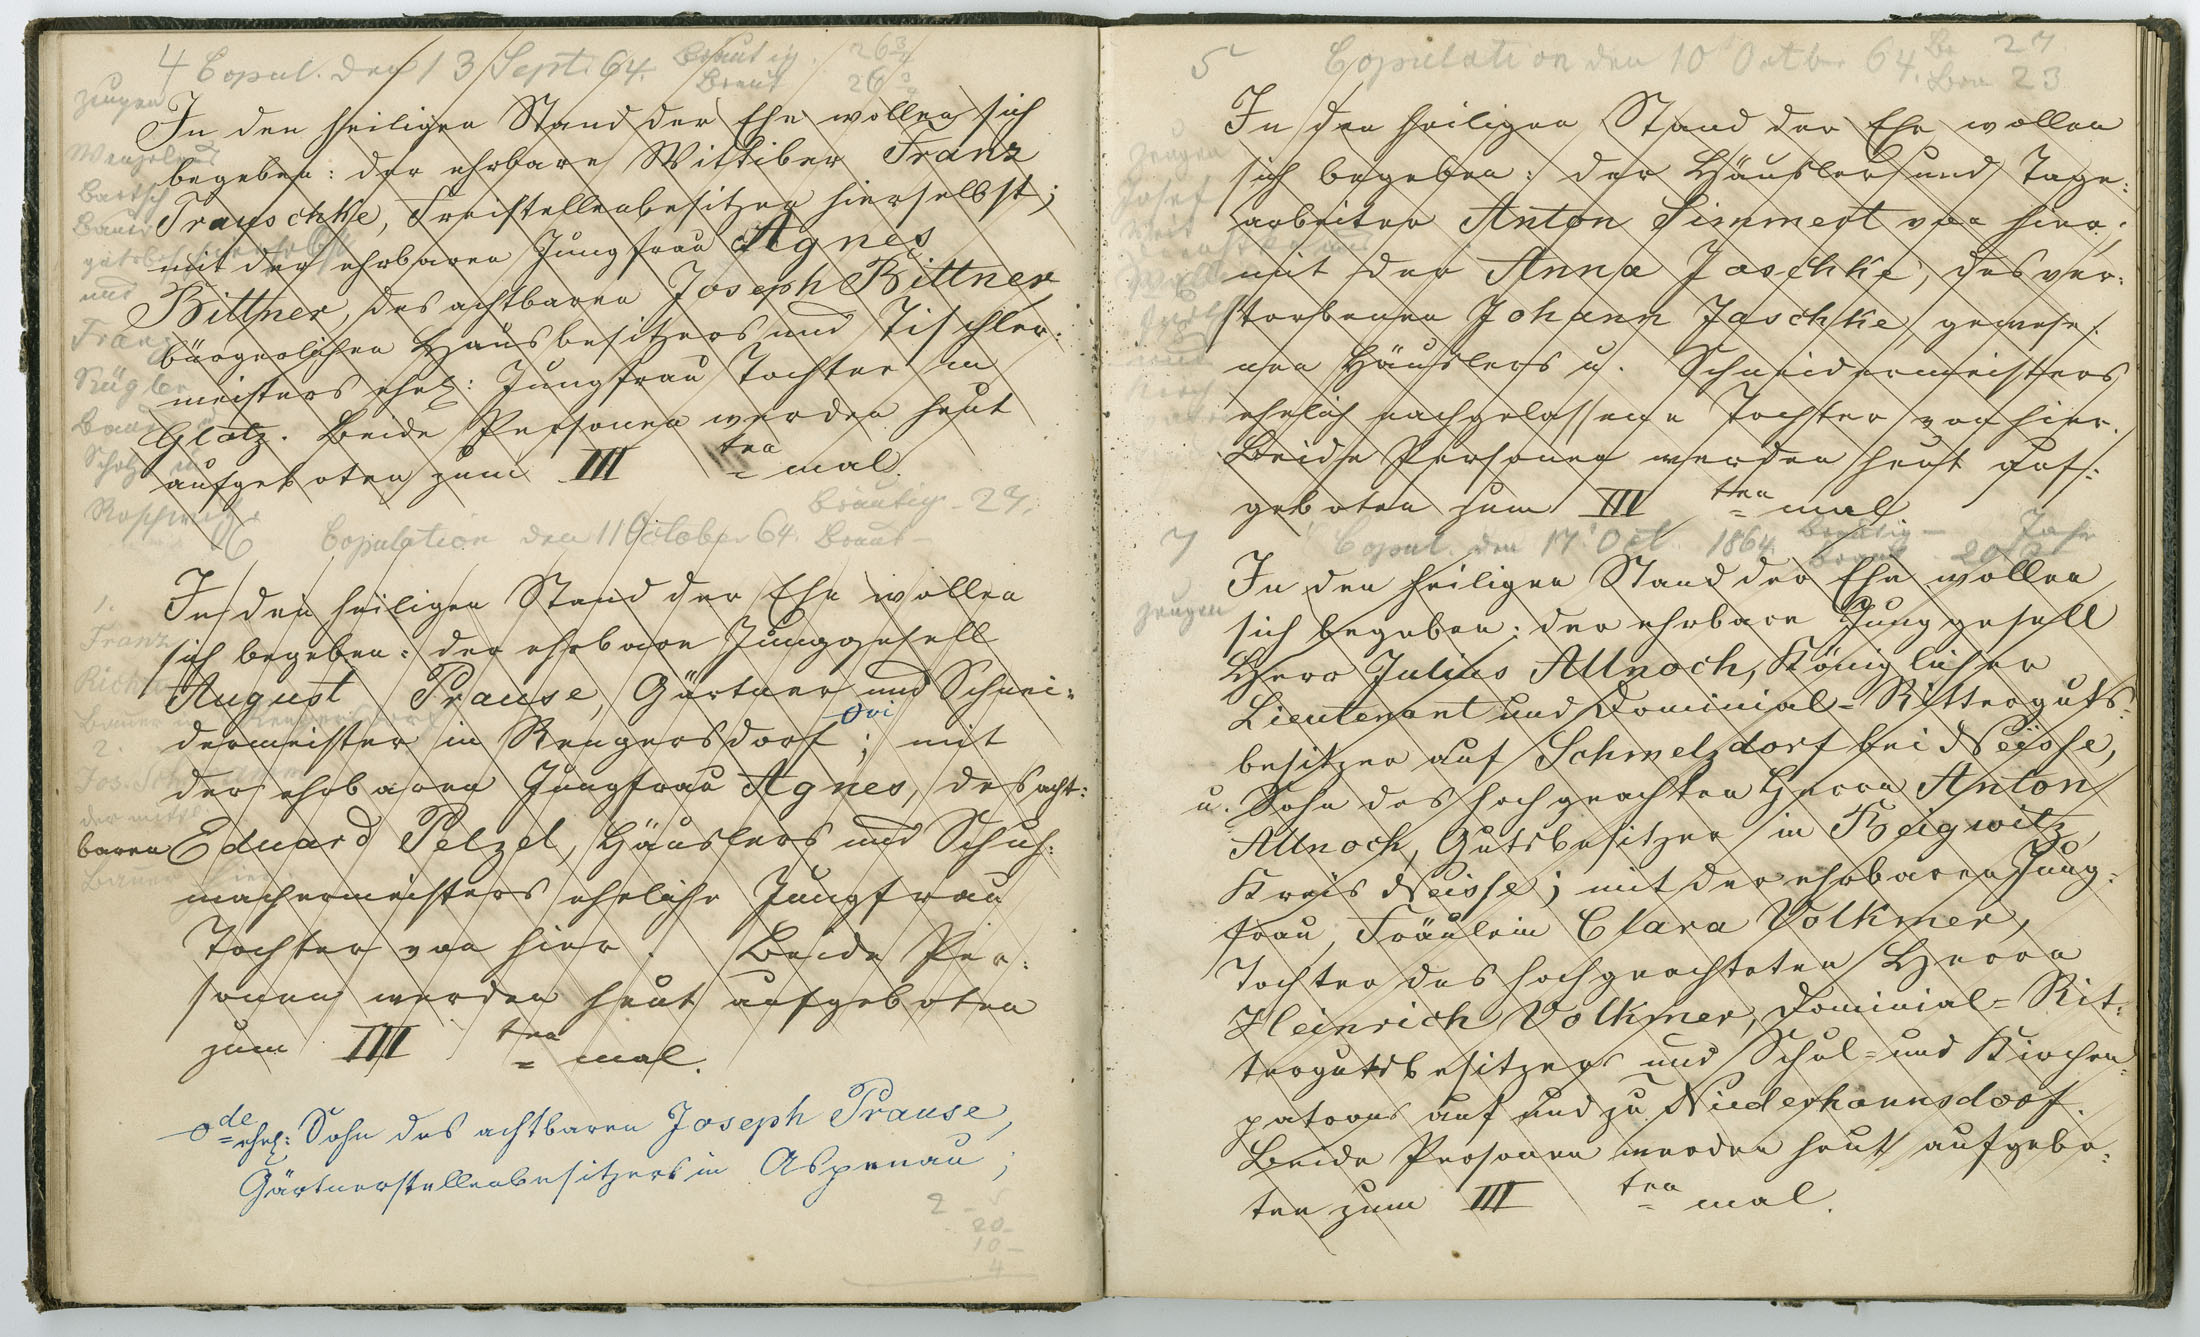 4 Copul. den 13 Sept. 64. Bräutig. 26 3/4
Braut 26
Zeugen
In den heiligen Stand der Ehe wollen sich
begeben: der ehrbare Wittiber Franz
Prauschke, Freistellenbesitzer hierselbst;
mit der ehrbaren Jungfrau Agnes
Bittner, des achtbaren Joseph Bittner
bürgerlichen Hausbesitzers und Tischler:
meisters ehel: Jungfrau Tochter in
Glatz. Beide Personen werden heut
aufgeboten zum III ten mal.
Bartsch
Bauer
und
Franz
Bräutig. 27.
6 Copulation den 11 October 64. Braut
In den heiligen Stand der Ehe wollen
sich begeben: der ehrbare Junggesell
August Prause, Gärtner und Schnei:
dermeister in Rengersdorf ; mit
der ehrbaren Jungfrau Agnes, des acht:
baren Eduard Pelzel, Häuslers und Schuh:
machermeisters eheliche Jungfrau
Tochter von hier. Beide Per:
sonen werden heut aufgeboten
zum III ten mal.
1.
Franz
2.
ehel: Sohn des achtbaren Joseph Prause,
Gärtnerstellenbesitzers in Aspenau;
2
20
10
4
5 Copulation den 10 Octbr 64. Br 27
23
Zeugen
Josef
In den heiligen Stand der Ehe wollen
sich begeben: der Häusler und Tage:
arbeiter Anton Simmert von hier;
mit der Anna Jaschke, des ver:
storbenen Johann Jaschke, gewese:
nen Häuslers u. Schneidermeisters
ehelich nachgelassene Tochter von hier.
Beide Personen werden heut auf:
geboten zum III ten mal
7 Copul. den 17. Oct. 1864. Bräutig — Jahr
Braut
Zeugen
In den heiligen Stand der Ehe wollen
sich begeben: der ehrbare Junggesell
Herr Julius Allnoch, Königlicher
Lieutenant und Dominial-Ritterguts:
besitzer auf Schmelzdorf bei Neisse,
u. Sohn des hochgeachten Herrn Anton
Allnoch, Gutsbesitzer in
Kreis Neisse; mit der ehrbaren Jung:
frau, Fräulein Clara Volkmer,
Tochter des hochgeachteten Herrn
Heinrich Volkmer, Dominial-Rit:
tergutsbesitzers und Schul- und Kirchen:
patrons auf und zu Niederhannsdorf.
Beide Personen werden heut aufgebo:
ten zum III ten mal.